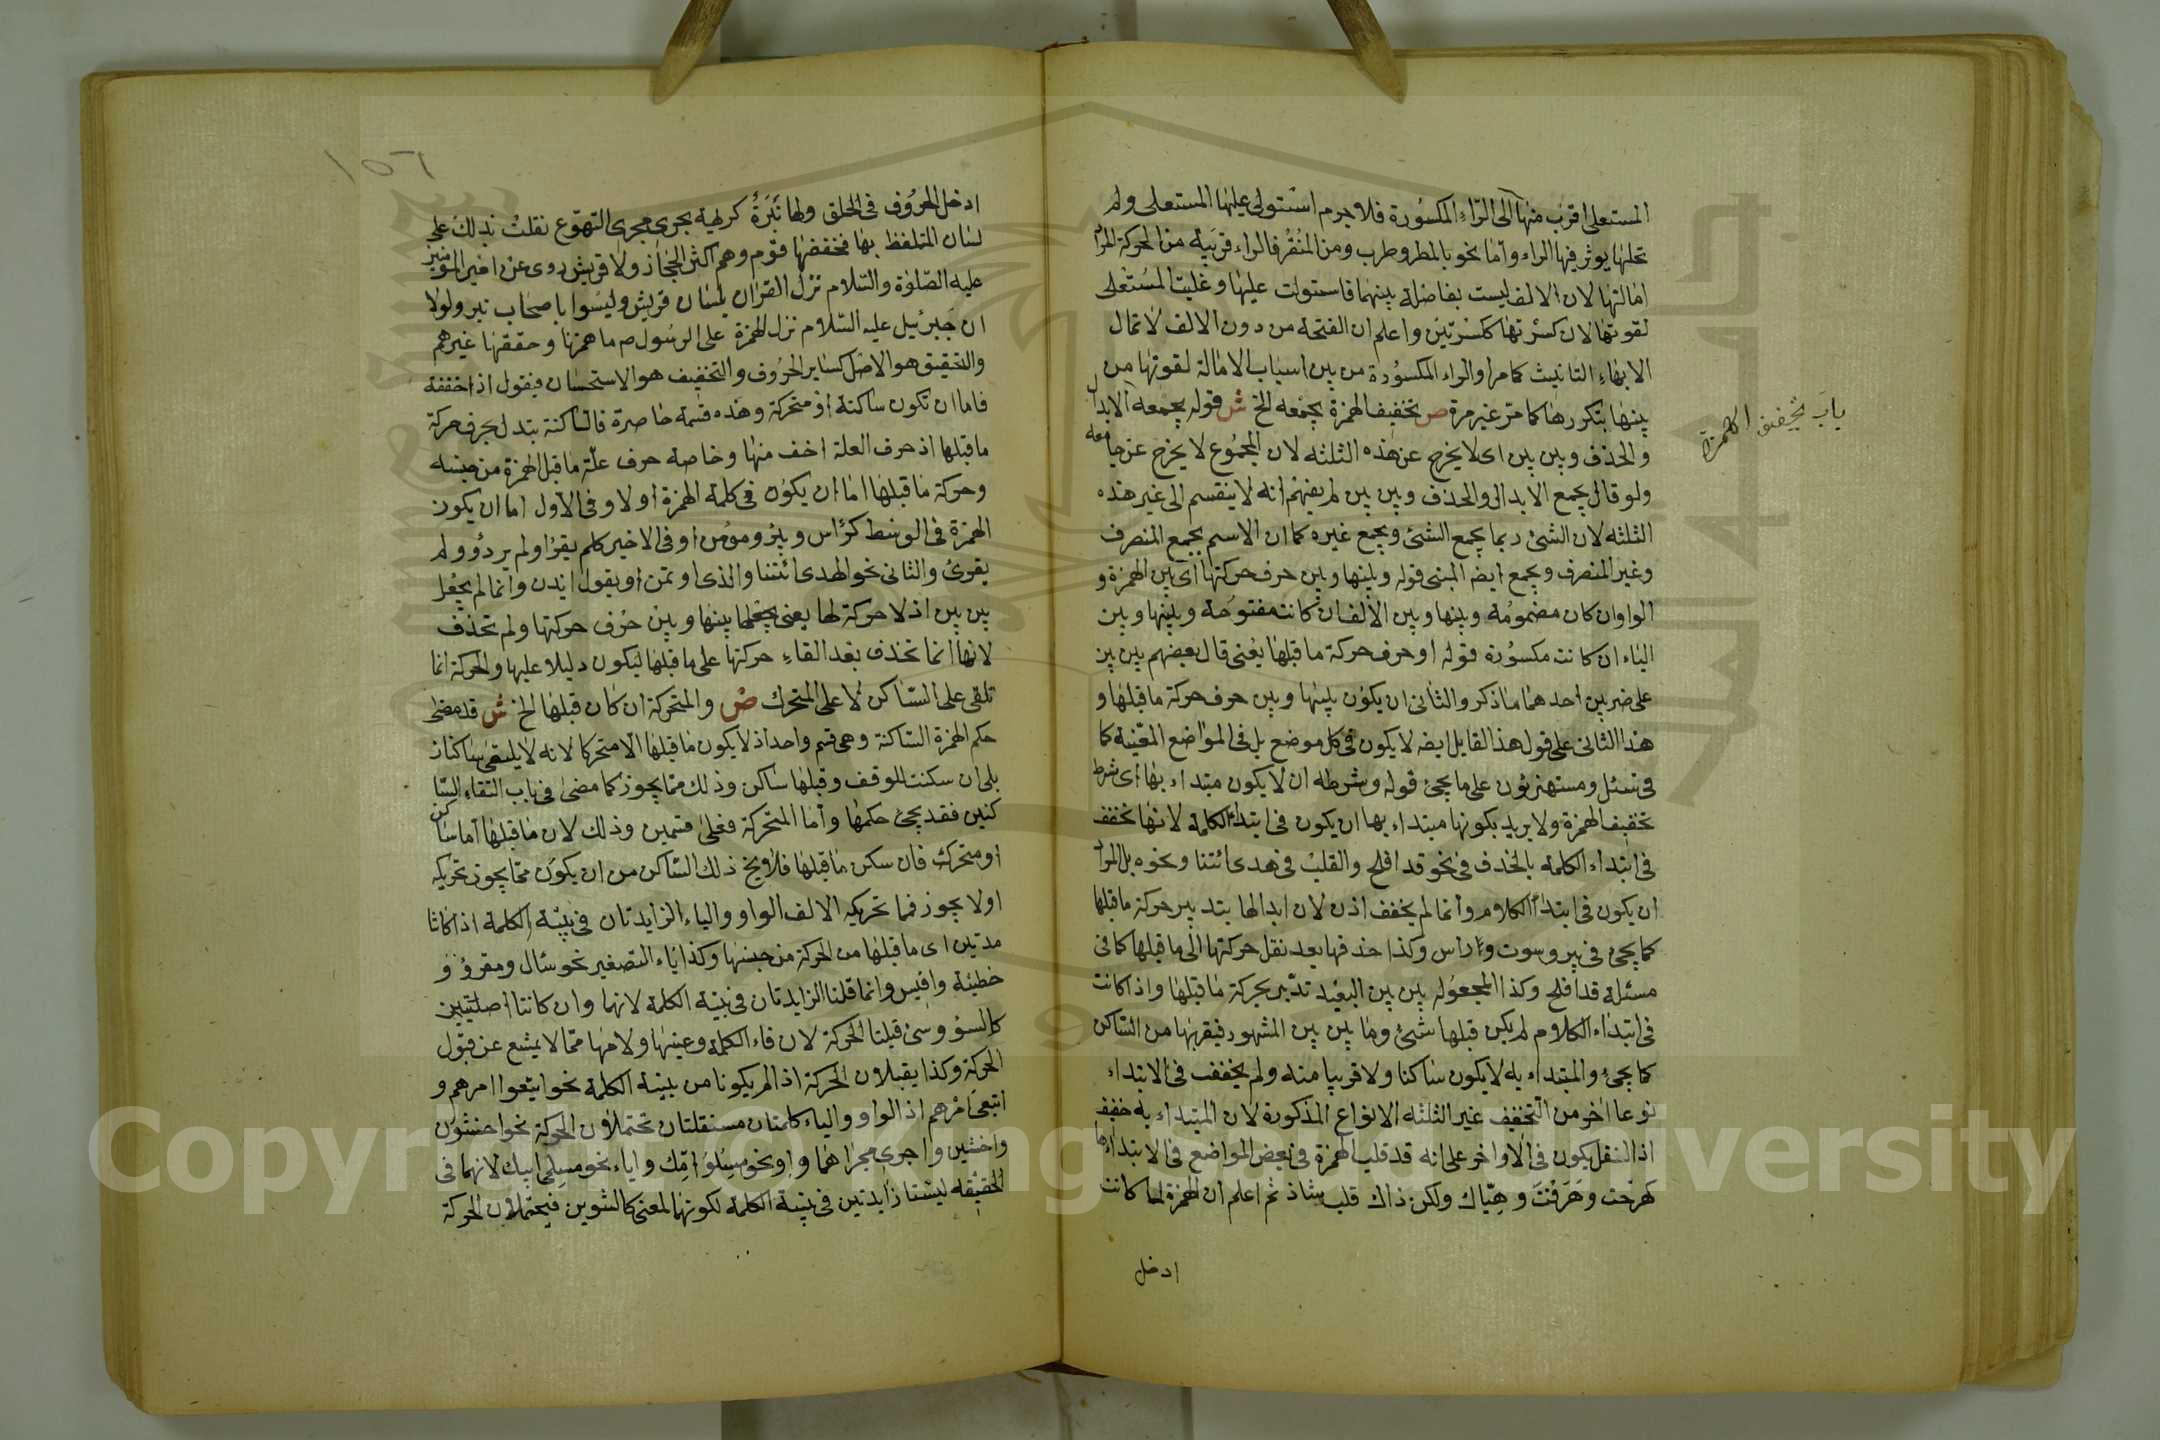 المستعلى اقرب منها الى الراء المكسورة فلا جرم استولى عليها المستعلى ولم
تخلها يوثر فيها الراء واما نحو بالمطر وطرب ومن المنقر فالراء قريبة من الحركة المراد
امالتها لان الالف ليست بفاصلة بينهما فاستولت عليها وغلبت المستعلى
لقوتها لان كسرتها ككسرتين واعلم ان الفتحة من دون الالف لا تمال
الا بهاء التانيث كما مر او الراء المكسورة من بين اسباب الامالة لقوتها من
بينها بتكررها كما مر غير مرة ص تخفيف الهمزة يجمعه الخ ش قوله يجمعه الابدال
باب تخفيف الهمزة
والحذف وبين بين اى لا يخرج عن هذه الثلثه لان المجموع لا يخرج عن جامعه
ولو قال يجمع الابدال والحذف وبين بين لم يفهم انه لا ينقسم الى غير هذه
الثلثه لان الشئ ربما يجمع الشئ ويجمع غيره كما ان الاسم يجمع المنصرف
وغير المنصرف ويجمع ايضه المبنى قوله وبينها وبين حرف حركتها اى بين الهمزة و
الواو ان كان مضمومة وبينها وبين الالف ان كانت مفتوحة وبينها وبين
الياء ان كانت مكسورة قوله او حرف حركة ما قبلها يعنى قال بعضهم بين بين
على ضربين احدهما ما ذكر والثانى ان يكون بينها وبين حرف حركة ما قبلها و
هذا الثانى على قول هذا القايل ايضه لا يكون فى كل موضع بل فى المواضع المعينة كما
فى سئل ومستهزئون على ما يجئ قوله وشرطه ان لا يكون مبتداء بها اى شرط
تخفيف الهمزة ولا يريد بكونها مبتداء بها ان يكون فى ابتداء الكلمة لانها تخفف
فى ابتداء الكلمة بالحذف فى نحو قد افلح والقلب فى هدى ائتنا ونحوه بل المراد
ان يكون فى ابتداء الكلام وانما لم يخفف اذن لان ابدالها بتدبير حركة ما قبلها
كما يجئ فى بير وسوت وراس وكذا حذفها بعد نقل حركتها الى ما قبلها كما فى
مسئلة قد افلح وكذا المجعوله بين بين البعيد تدبر بحركة ما قبلها واذا كانت
فى ابتداء الكلام لم يكن قبلها شئ وما بين بين المشهور فيقربها من الساكن
كما يجئ والمبتداء به لا يكون ساكنا ولا قريبا منه ولم يخفف فى الابتداء
نوعا اخر من التخفف غير الثلثه الانواع المذكورة لان المبتداء به خفيف
اذ الثقل يكون فى الاواخر على انه قد قلب الهمزة فى بعض المواضع فى الابتداء ها
كهرحت وهرقت وهياك ولكن ذاك قلب شاذ ثم اعلم ان الهمزة لما كانت
ادخل
ادخل الحروف فى الحلق ولها نبرة كريهة يجرى مجرى التهوع نقلت بذلك على
لسان المتلفظ بها فخففها قوم وهم اكثر الحجاز ولا قريش روى عن امير المومنين
عليه الصلوة والسلام نزل القران بلسان قريش وليسوا باصحاب نبر ولولا
ان جبرئيل عليه السلام نزل الهمزة على الرسول ص ما همزنا وحققها غيرهم
والتحقيق هو الاصل كساير الحروف والتخفيف هو الاستحسان فيقول اذا خففة
فاما ان تكون ساكنة او متحركة وهذه قسمة حاصرة فالساكنة تبدل بحرف حركة
ما قبلها اذ حرف العلة اخف منها وخاصة حرف علة ما قبل الهمزة من جنسه
وحركة ما قبلها اما ان يكون فى كلمة الهمزة او لا وفى الاول اما ان يكون
الهمزة فى الوسط كرأس وبئر ومؤمن او فى الاخير كلم يقرا ولم يردؤ ولم
يقرئ والثانى نحو الهدى ائتنا والذى اوتمن او يقول ايذن وانما لم يجعل
بين بين اذ لا حركة لها يعنى يجعلها بينها وبين حرف حركتها ولم تحذف
لانها انما تحذف بعد القاء حركتها على ما قبلها ليكون دليلا عليها والحركة انما
تلقى على الساكن لا على المتحرك ص والمتحركة ان كان قبلها الخ ش قد مضى
حكم الهمزة الساكنة وهى قسم واحد اذ لا يكون ما قبلها الا متحركا لانه لا يلتقى ساكنان
بلى ان سكنت للوقف وقبلها ساكن وذلك مما يجوز كما مضى فى باب التقاء السا
كنين فقد يجئ حكمها واما المتحركة فعلى قسمين وذلك لان ما قبلها اما ساكن
او متحرك فان سكن ما قبلها فلا يخ ذلك الساكن من ان يكون مما يجوز تحريكه
او لا يجوز فما تحريكه الالف الواو والياء الزايدتان فى بنية الكلمة اذا كانتا
مدتين اى ما قبلها من الحركة من جنسها وكذا ياء التصغير نحو سئال ومقروؤ و
خطيئة وافيس وانما قلنا الزايدتان فى بنية الكلمة لانهما وان كانتا اصليتين
كالسوؤ وسئ قبلنا الحركة لان فاء الكلمة وعينها ولامها مما لا يمتنع عن قبول
الحركة وكذا يقبلان الحركة اذا لم يكونا من بنية الكلمة نحو ابتغوا امرهم و
ابتغى امرهم اذ الواو والياء كلمتان مستقلتان تحتملان الحركة نحو اخشون
واخشين واجرى مجراهما واو نحو مسلمو امك وياء نحو مسلمى ابيك لانهما فى
الحقيقه ليستا زايدتين فى بنية الكلمة لكونهما لمعنى كالتنوين فيحتملان الحركة
Copyright © King Saud University